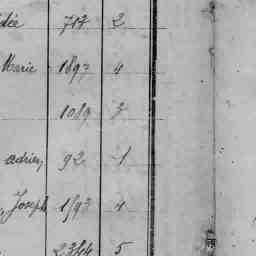 717 2
Marie 1897 4
1089 3
adrien 92 1
Joseph 1893 4
2344 5